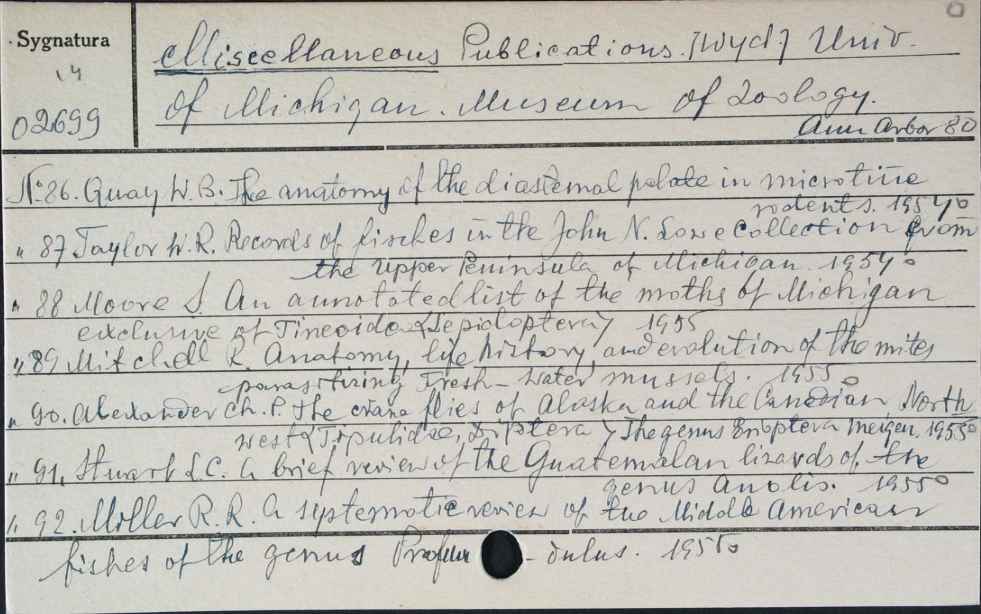 Sygnatura
14
02699
Miscellaneous Publications. [Wyd.] Univ.
of Michigan. Museum of Zoology.
Ann Arbor 80
No 86. Quay W.B. The anatomy of the diastemal palate in microtine
rodents. 1954
" 87 Taylor W.R. Records of fisches in the John N. Lowe Collection from
the Upper Peninsula of Michigan. 1954
" 88 Moore S. An annotated list of the moths of Michigan
exclusive of Tineoidea (Lepidoptera) 1955
" 89 Mitchell R. Anatomy, life history, and evolution of the mites
parasitizing Fresh-water mussels. 1955
" 90. Alexander Ch. P. The crane flies of Alaska and the Canadian North
west (Tipulidae, Diptera) The genus Erioptera Meigen. 1955
" 91. Stuart L.C. A brief review of the Guatemalan lizards of the
genus Anolis. 1955
" 92. Miller R.R. A systematic review of the Middle American
fishes of the genus Profun - dulus. 1955